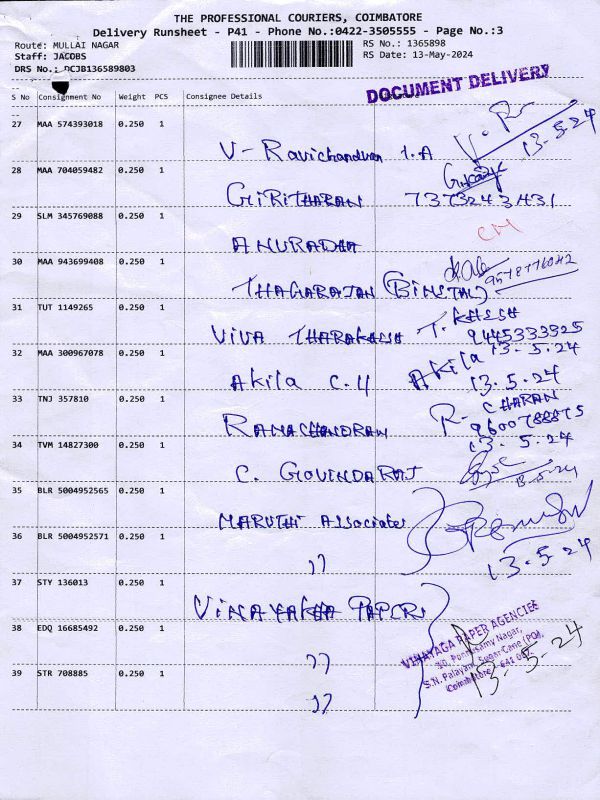 THE PROFESSIONAL COURIERS, COIMBATORE
Delivery Runsheet - P41 - Phone No.:0422-3505555 - Page No.:3
Route: MULLAI NAGAR
RS No.: 1365898
Staff: JACOBS
RS Date: 13-May-2024
DRS No.: DCJB136589803
DOCUMENT DELIVERY
S No Consignment No Weight PCS Consignee Details
27 MAA 574393018 0.250 1
V. R 13-5-24
V- Ravichandran I.A
28 MAA 704059482 0.250 1
GIRITHARAN 7373243431
29 SLM 345769088 0.250 1
ANURADHA
30 MAA 943699408 0.250 1
THAGARAJAN (BINSTAL)
31 TUT 1149265 0.250 1
VIVA T.
9445333325
32 MAA 300967078 0.250 1
13.5.24
Akila C.4 Akila 13.5.24
33 TNJ 357810 0.250 1
R- CHARAN
RAMACHANDRAN 9600788875
34 TVM 14827300 0.250 1
13.5.24
C. GOVINDARAJ
35 BLR 5004952565 0.250 1
MARUTHI Associates
36 BLR 5004952571 0.250 1
" 13.5.24
37 STY 136013 0.250 1
VINAYAKA PAPER
38 EDQ 16685492 0.250 1
VINAYAGA PAPER AGENCIES
30, Ponnusamy Nagar,
S.N. Palayam, Sugar Cane (PO),
Coimbatore - 641 007.
" 13-5-24
39 STR 708885 0.250 1
"